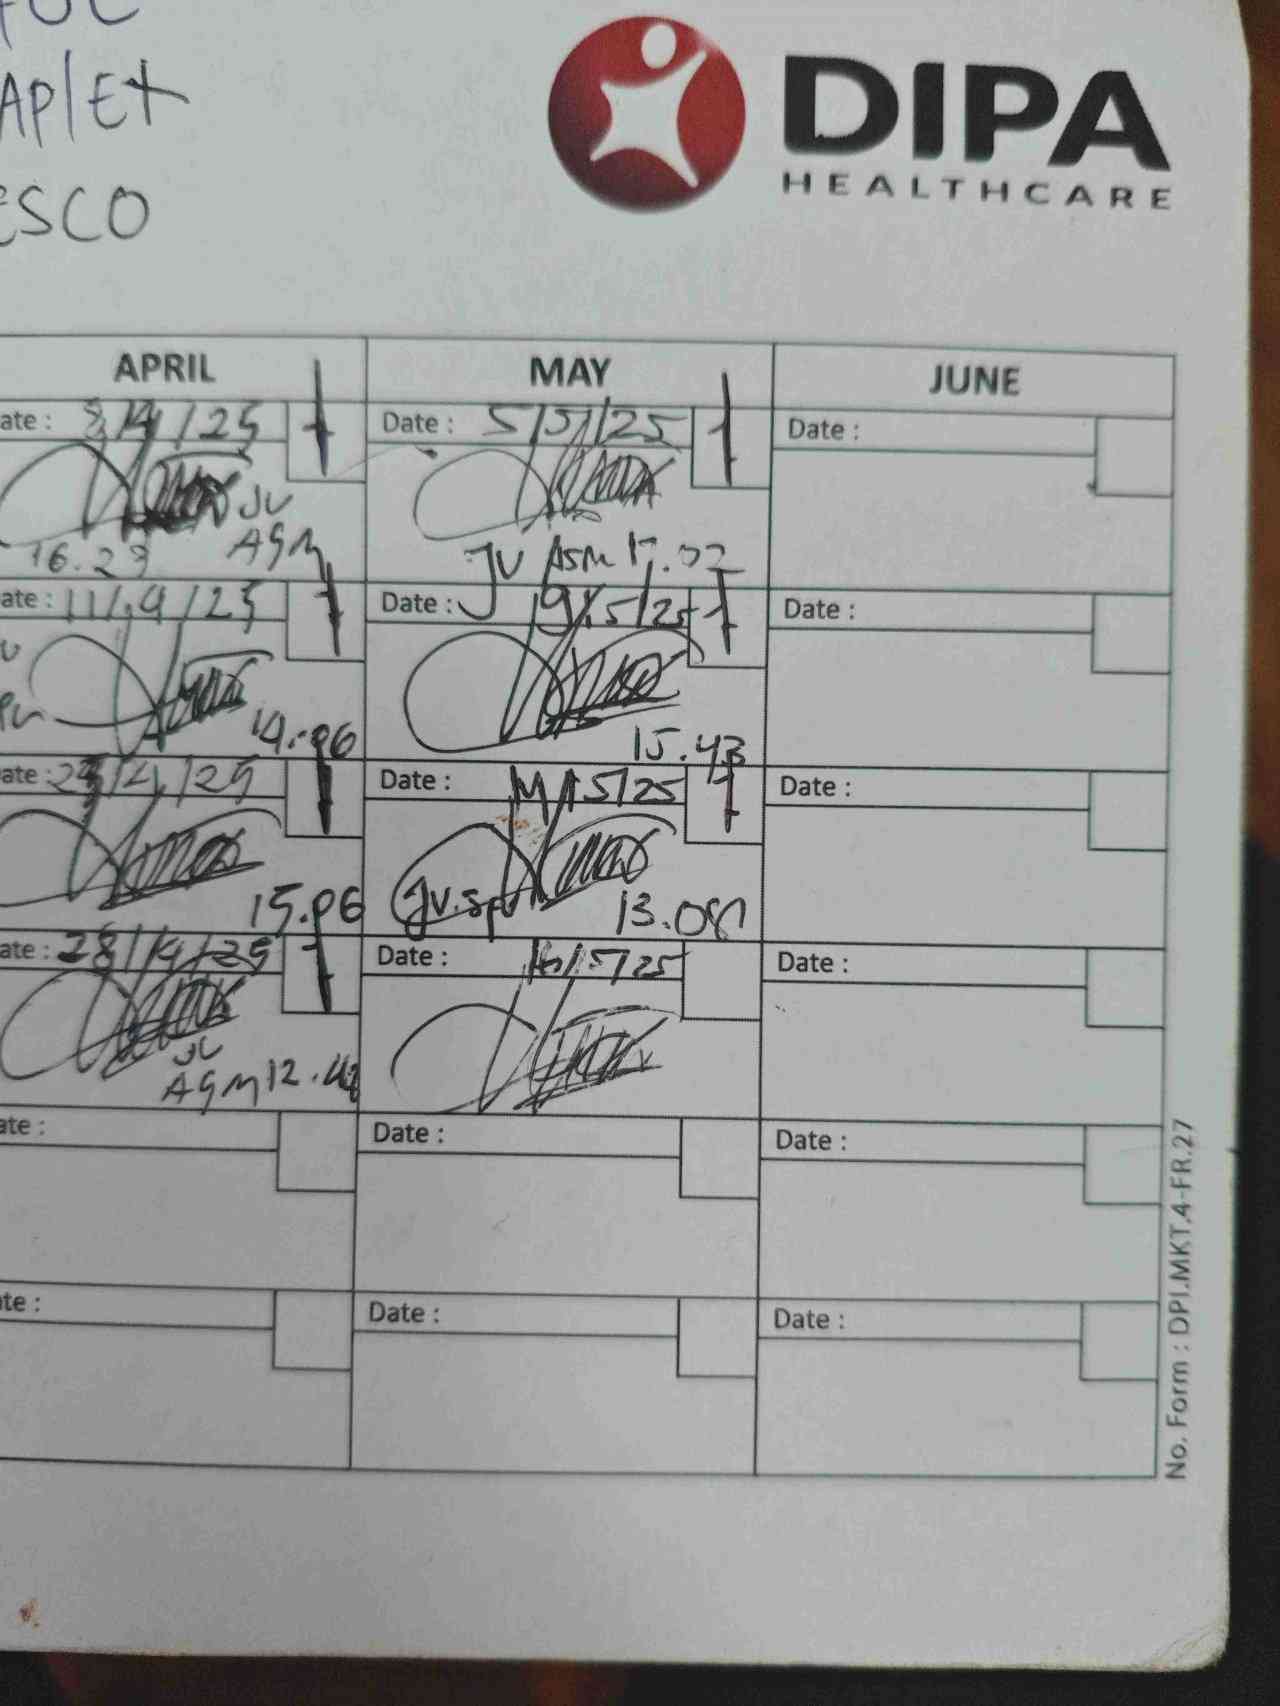 APlEt
ESCO
DIPA
HEALTHCARE
APRIL MAY JUNE
ate : 8/4/25 Date : 5/5/25 Date :
JV
AGM
16.29
JV ASM 17.02
ate : 11/4/25 Date : 9/5/25 Date :
14.06
15.43
ate : /4/25 Date : 14/5/25 Date :
15.06
JV.Sp 13.08
ate : 28/4/25 Date : 16/5/25 Date :
JV
AGM 12.48
ate : Date : Date :
te : Date : Date :
No. Form : DPI.MKT.4-FR.27